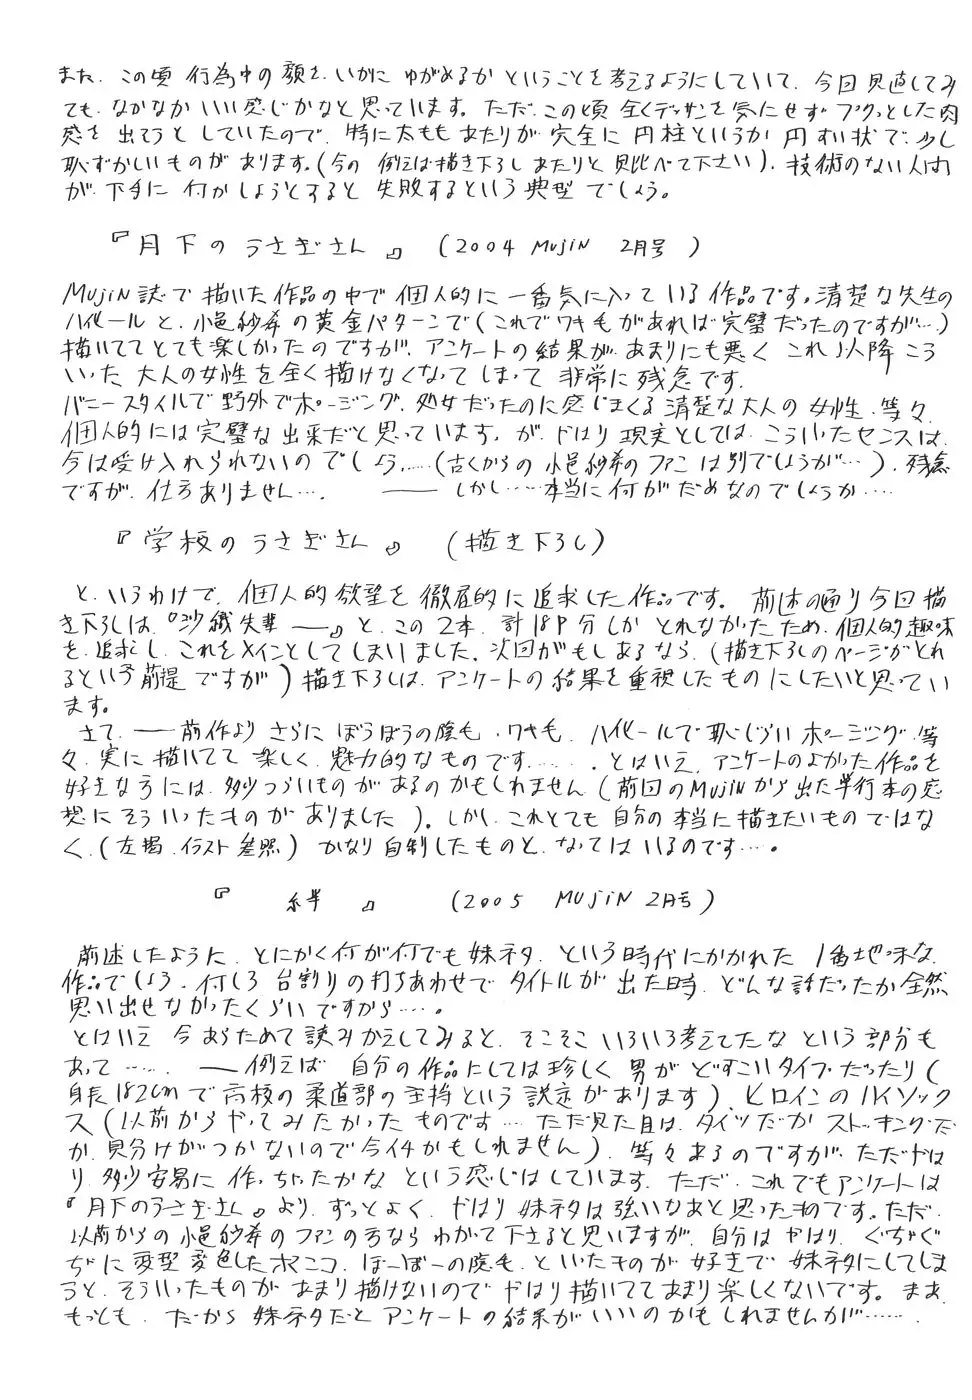 また、この頃 行為中の顔を、いかに ゆがめるか ということを考えるようにしていて、今回 見直してみ
ても、なかなか いい感じかなと 思っています。ただ、この頃 全くデッサンを気にせず プクっとした肉
感を 出そうと していたので、特に太もも あたりが 完全に 円柱というか 円すい状で、少し
恥ずかしいものが あります。(今の 例えば描き下ろし あたりと 見比べて下さい)、技術のない人間
が、下手に 何かしようとすると 失敗するという 典型 でしょう。
『月下のうさぎさん』 (2004 MUJIN 2月号)
MUJIN誌で 描いた作品の中で 個人的に 一番気に入っている作品です。清楚な先生の
ハイヒールと、小邑紗希の黄金パターンで(これでワキ毛があれば完璧だったのですが…)
描いててとても楽しかったのですが、アンケートの結果が、あまりにも悪く これ以降こう
いった 大人の女性を全く描けなくなってしまって 非常に残念です。
バニースタイルで 野外でポージング、処女だったのに感じまくる清楚な大人の女性、等々、
個人的には完璧な出来だと思っています。が、やはり現実としては、こういったセンスは、
今は受け入れられないのでしょう……(古くからの小邑紗希のファンは別でしょうが…)、残念
ですが、仕方ありません…。 ―― しかし……本当に何がだめなのでしょうか……
『学校のうさぎさん』 (描き下ろし)
と、いうわけで、個人的欲望を徹底的に追求した作品です。前述の通り今回描
き下ろしは、『沙織先輩 ――』と、この2本、計18P分しか とれなかったため、個人的趣味
を、追求し、これをメインとしてしまいました。次回がもしあるなら、(描き下ろしのページがとれ
るという前提ですが)描き下ろしは、アンケートの結果を重視したものにしたいと思ってい
ます。
さて、――前作より さらに ぼうぼうの陰毛、ワキ毛、ハイヒールで恥じらいポージング、等
々、実に描いてて楽しく、魅力的なものです……。とはいえ、アンケートのよかった作品を
好きな方には、多少つらいものがあるのかもしれません(前回のMUJINから出た単行本の感
想にそういったものがありました)。しかし、これとても自分の本当に描きたいものではな
く、(左揭、イラスト参照)かなり自制したものと、なってはいるのです…。
『 絆 』 (2005 MUJIN 2月号)
前述したように、とにかく何が何でも妹ネタ、という時代にかかれた 1番地味な
作品でしょう。何しろ台割りの打ちあわせで タイトルが出た時、どんな話だったか全然
思い出せなかったくらいですから…。
とはいえ 今 あらためて読みかえしてみると、そこそこいろいろ考えてたなという部分も
あって……。――例えば 自分の作品にしては珍しく 男が どすこいタイプだったり(
身長182cmで高校の柔道部の主将という設定があります)、ヒロインのハイソック
ス(以前からやってみたかったものです…ただ見た目は、タイツだかストッキングだ
か、見分けがつかないので今イチかもしれません)、等々あるのですが、ただやは
り、多少安易に作っちゃったかなという感じはしています。ただ、これでもアンケートは
『月下のうさぎさん』より、ずっとよく、やはり妹ネタは強いなあと思ったものです。ただ、
以前からの小邑紗希のファンの方ならわかって下さると思いますが、自分はやはり、ぐちゃぐ
ちゃに変型変色したオマ○コ、ぼーぼーの陰毛、といったものが好きで 妹ネタにしてしま
うと、そういったものがあまり描けないので やはり描いててあまり楽しくないです。まあ、
もっとも、だから妹ネタだとアンケートの結果がいいのかもしれませんが……。